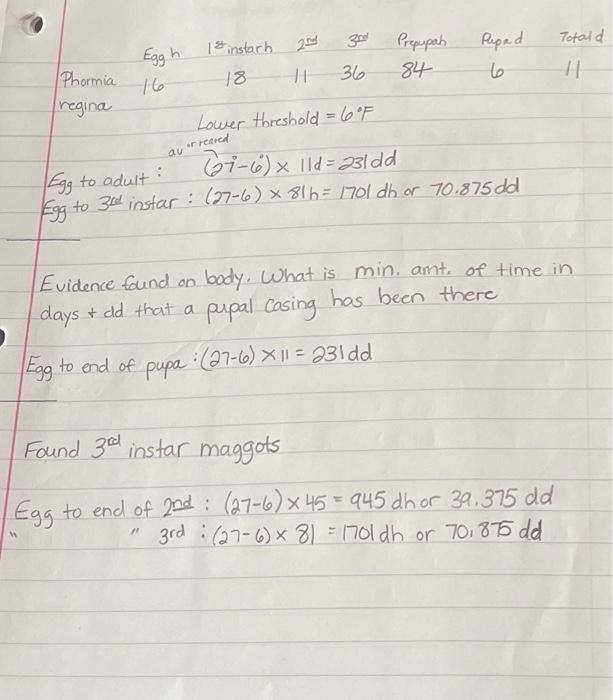 Egg h 1st instar h 2nd 3rd Prepupah Pupa d Total d
Phormia 16 18 11 36 84 6 11
regina
Lower threshold = 6°F
av or reared
Egg to adult : (27°-6°) × 11d = 231dd
Egg to 3rd instar : (27-6) × 81h = 1701 dh or 70.875dd
Evidence found on body. What is min. amt. of time in
days + dd that a pupal casing has been there
Egg to end of pupa : (27-6) × 11 = 231dd
Found 3rd instar maggots
Egg to end of 2nd : (27-6) × 45 = 945 dh or 39.375 dd
" " 3rd : (27-6) × 81 = 1701 dh or 70.875 dd